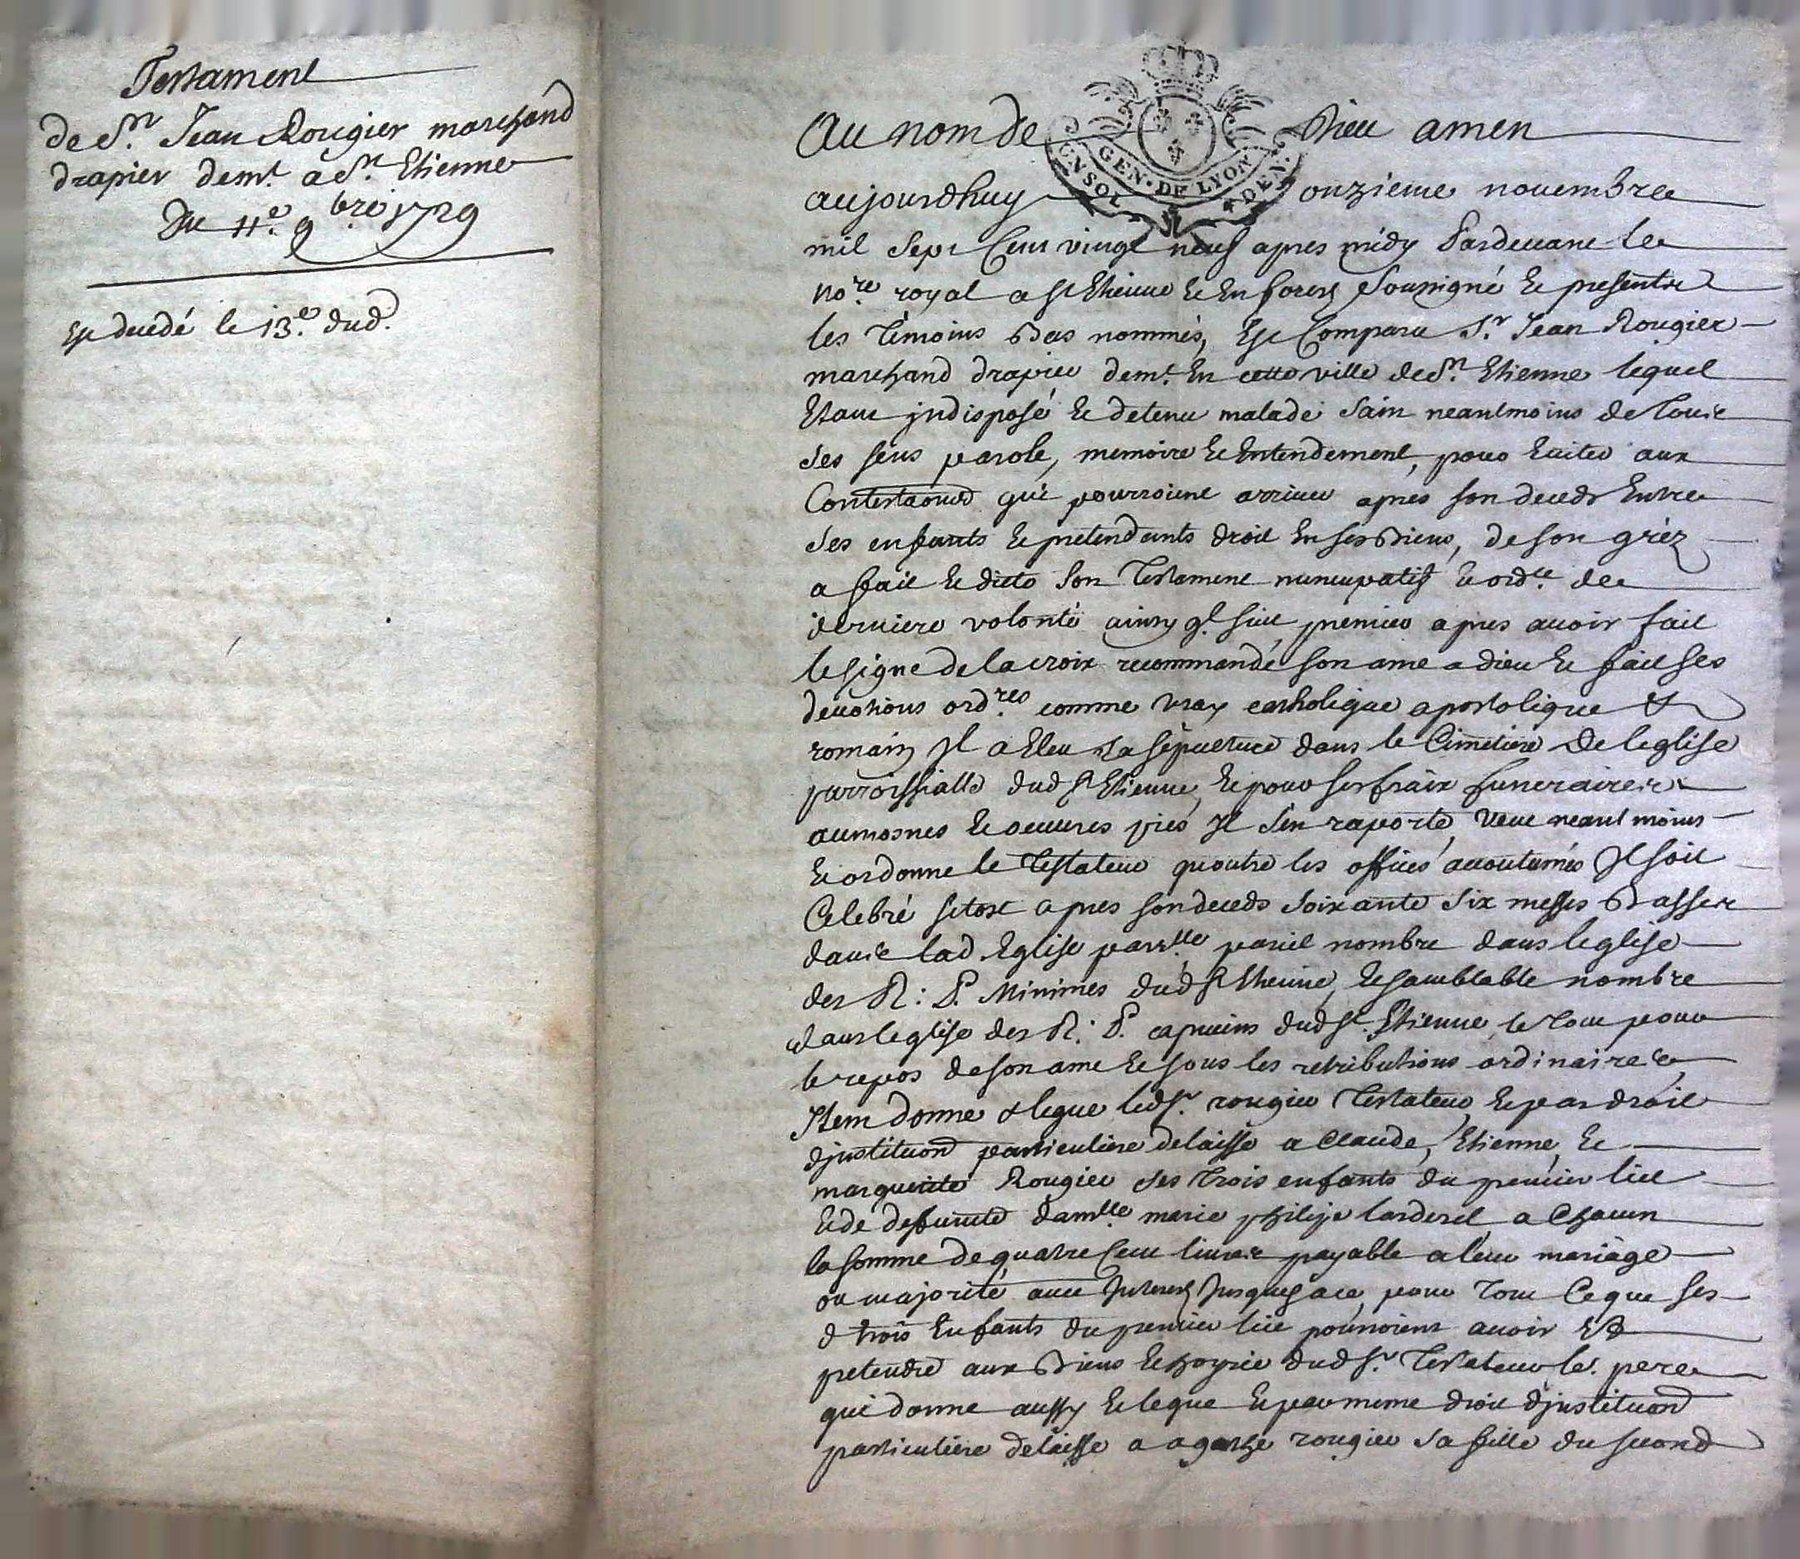 Testament
de Sr. Jean Rougier marchand
drapier demt. à St. Etienne
Du 11e. 9bre 1729
Est decedé le 13e. dud.
Au nom de Dieu amen
GEN. DE LYON
aujourdhuy onzieme novembre
mil sept cent vingt neuf apres midy Pardevant le
nore. royal a St Etienne et en forest soussigné et presents
les témoins bas nommés, Est Comparu Sr. Jean Rougier
marchand drapier demt. En cette ville de St. Etienne lequel
Etant indisposé et detenu malade sain neantmoins de tous
ses sens parole, memoire et Entendement, pour Eviter aux
Contestaons qui pourroient arriver apres son deceds Entre
ses enfants et pretendants droit En ses biens, de son gréz
a fait et dicté son Testament nuncupatif et ordce. de
derniere volonté ainsy ql. suit, premier apres avoir fait
le signe de la croix recommandé son ame a dieu et fait ses
devotions ordres comme vray catholique apostolique &
romain Il a Eleu sa sépulture dans le Cimetiere De leglise
parroissialle dud St Etienne, et pour ses fraix funeraires
aumosnes et oeuvres pies Il s'en raporte, veut neantmoins
et ordonne le Testateur quoutre les offices accoutumés Il soit
Celebré sitost apres son deceds soixante six messes basses
dans lad. Eglise parrlle. pareil nombre dans leglise
des R: P. Minimes dud St Etienne, et samblable nombre
dans leglise des R: P. capucins dud St. Etienne, le tout pour
le repos de son ame et sous les retributions ordinaires
Item donne & legue led Sr. rougier Testateur, et par droit
djnstituon particuliere delaisse a Claude, Etienne, et
marguerite Rougier ses trois enfants du premier lict
et de deffuncte damlle. marie philipe larderel a Chacun
la somme de quatre Cent livres payable a leur mariage
ou majorité avec Interest Jusques a ce, pour tout Ce que ses
d trois Enfants du premier lict pourroient avoir Et
pretendre aux biens et hoyrie dud Sr. Testateur le pere
qui donne aussy et legue et par meme droit djnstituon
particuliere delaisse a agathe rougier sa fille du second